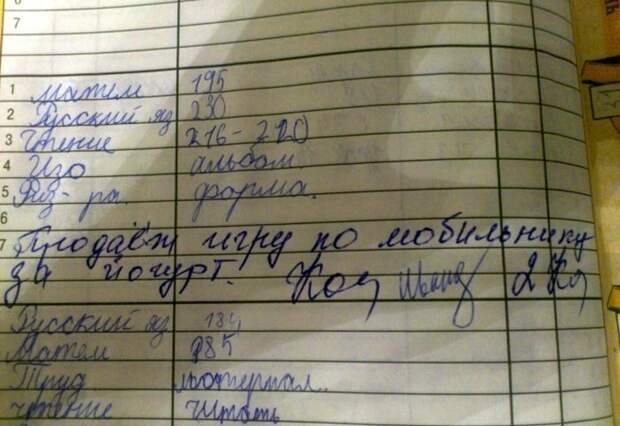 6
7
1 матем 195
2 Русский яз 230
3 Чтение 216-220
4 Изо альбом
5 Физ-ра. форма.
6
7 Продавж игру по мобильнику
за йогурт. 2
Русский яз 184
Матем 185
Труд материал..
чтение читать